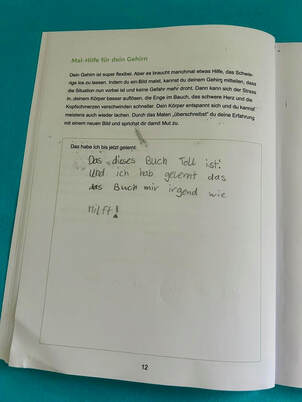 Mal-Hilfe für dein Gehirn
Dein Gehirn ist super flexibel. Aber es braucht manchmal etwas Hilfe, das Schwie-
rige los zu lassen. Indem du ein Bild malst, kannst du deinem Gehirn mitteilen, dass
die Situation nun vorbei ist und keine Gefahr mehr droht. Dann kann sich der Stress
in deinem Körper besser auflösen, die Enge im Bauch, das schwere Herz und die
Kopfschmerzen verschwinden schneller. Dein Körper entspannt sich und du kannst
meistens auch wieder lachen. Durch das Malen „überschreibst" du deine Erfahrung
mit einem neuen Bild und sprichst dir damit Mut zu.
Das habe ich bis jetzt gelernt:
Das dieses Buch Toll ist!
Und ich hab gelernt das
das Buch mir irgend wie
Hilft!
12